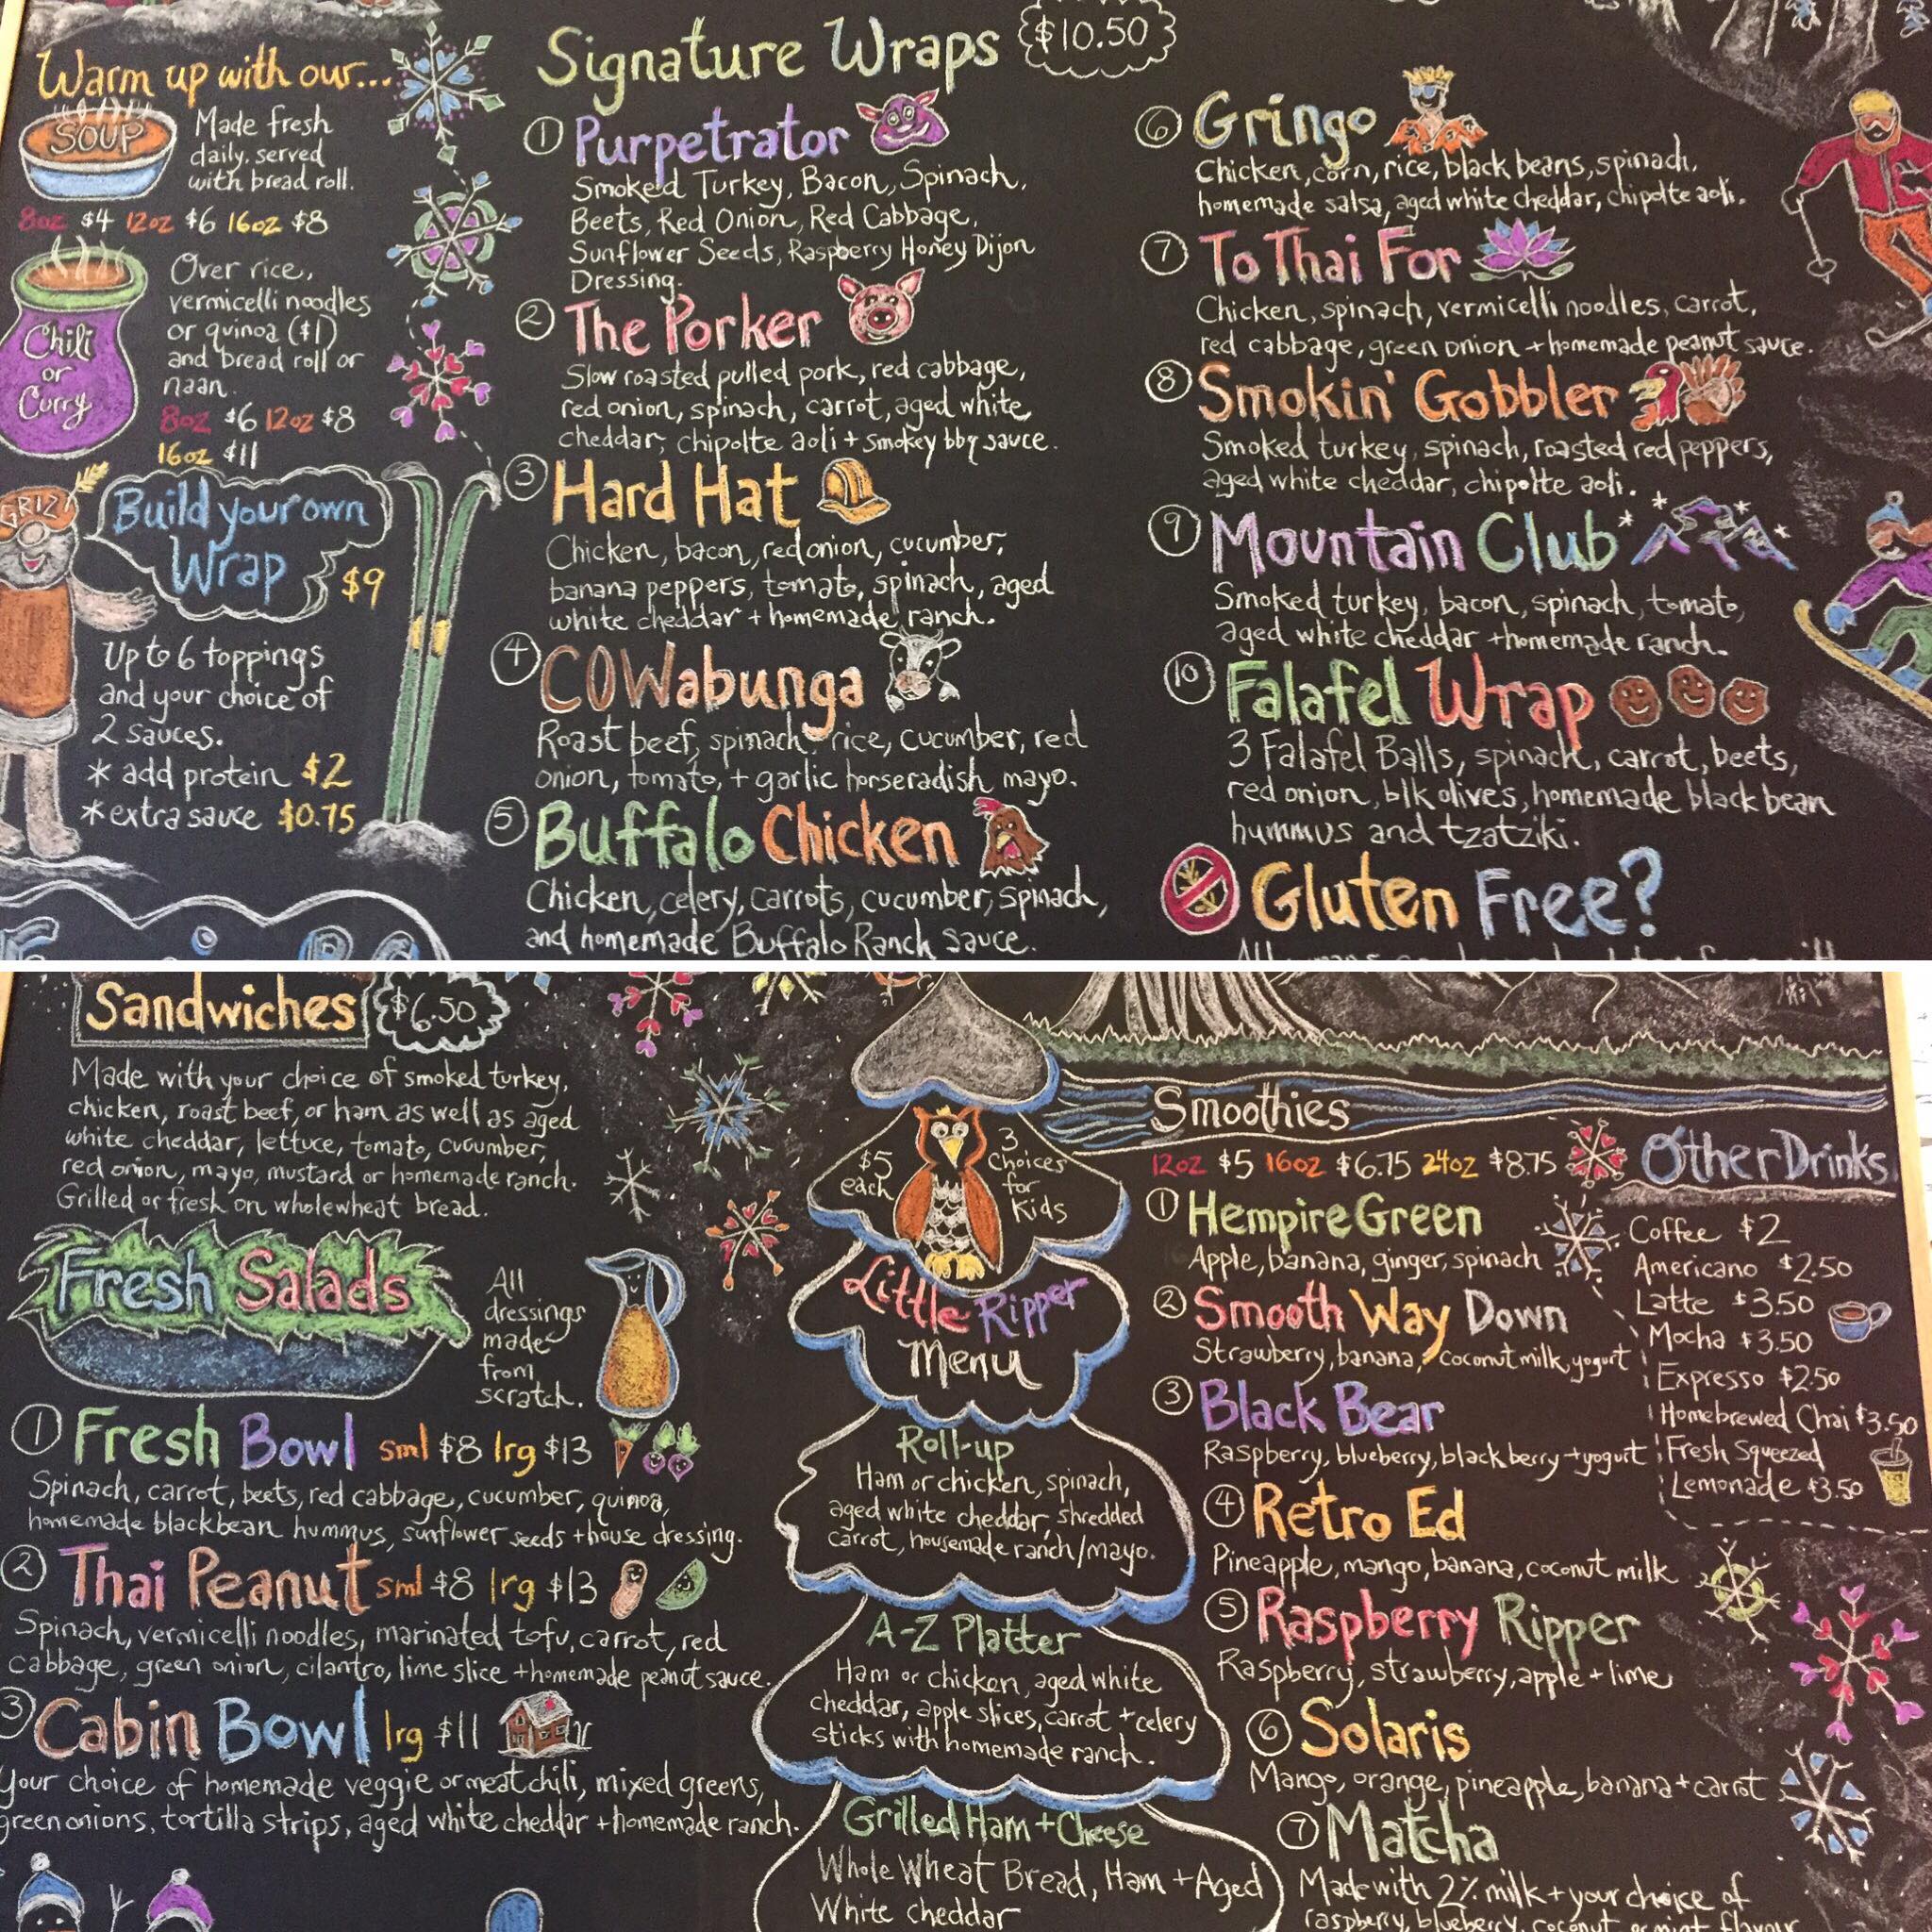 Warm up with our...
SOUP
Made fresh
daily, served
with bread roll.
8oz $4 12oz $6 16oz $8
Chili
or
Curry
Over rice,
vermicelli noodles
or quinoa ($1)
and bread roll or
naan.
8oz $6 12oz $8
16oz $11
GRIZ
Build your own
Wrap
$9
Up to 6 toppings
and your choice of
2 sauces.
* add protein $2
* extra sauce $0.75
Signature Wraps $10.50
1 Purpetrator
Smoked Turkey, Bacon, Spinach,
Beets, Red Onion, Red Cabbage,
Sunflower Seeds, Raspberry Honey Dijon
Dressing.
2 The Porker
Slow roasted pulled pork, red cabbage,
red onion, spinach, carrot, aged white
cheddar, chipolte aoli + smokey bbq sauce.
3 Hard Hat
Chicken, bacon, red onion, cucumber,
banana peppers, tomato, spinach, aged
white cheddar + homemade ranch.
4 COWabunga
Roast beef, spinach, rice, cucumber, red
onion, tomato, + garlic horseradish mayo.
5 Buffalo Chicken
Chicken, celery, carrots, cucumber, spinach,
and homemade Buffalo Ranch sauce.
6 Gringo
Chicken, corn, rice, black beans, spinach,
homemade salsa, aged white cheddar, chipolte aoli.
7 To Thai For
Chicken, spinach, vermicelli noodles, carrot,
red cabbage, green onion + homemade peanut sauce.
8 Smokin' Gobbler
Smoked turkey, spinach, roasted red peppers,
aged white cheddar, chipolte aoli.
9 Mountain Club
Smoked turkey, bacon, spinach, tomato,
aged white cheddar + homemade ranch.
10 Falafel Wrap
3 Falafel Balls, spinach, carrot, beets,
red onion, blk olives, homemade black bean
hummus and tzatziki.
Gluten Free?
Sandwiches $6.50
Made with your choice of smoked turkey,
chicken, roast beef, or ham as well as aged
white cheddar, lettuce, tomato, cucumber,
red onion, mayo, mustard or homemade ranch.
Grilled or fresh on wholewheat bread.
Fresh Salads
All
dressings
made
from
scratch.
1 Fresh Bowl sml $8 lrg $13
Spinach, carrot, beets, red cabbage, cucumber, quinoa,
homemade blackbean hummus, sunflower seeds + house dressing.
2 Thai Peanut sml $8 lrg $13
Spinach, vermicelli noodles, marinated tofu, carrot, red
cabbage, green onion, cilantro, lime slice + homemade peanut sauce.
3 Cabin Bowl lrg $11
Your choice of homemade veggie or meat chili, mixed greens,
green onions, tortilla strips, aged white cheddar + homemade ranch.
$5
each
3
Choices
for
Kids
Little Ripper
Menu
Roll-up
Ham or chicken, spinach,
aged white cheddar, shredded
carrot, housemade ranch/mayo.
A-Z Platter
Ham or chicken, aged white
cheddar, apple slices, carrot + celery
sticks with homemade ranch.
Grilled Ham + Cheese
Whole Wheat Bread, Ham + Aged
White cheddar
Smoothies
12oz $5 16oz $6.75 24oz $8.75
1 Hempire Green
Apple, banana, ginger, spinach
2 Smooth Way Down
Strawberry, banana, coconut milk, yogurt
3 Black Bear
Raspberry, blueberry, blackberry + yogurt
4 Retro Ed
Pineapple, mango, banana, coconut milk
5 Raspberry Ripper
Raspberry, strawberry, apple + lime
6 Solaris
Mango, orange, pineapple, banana + carrot
7 Matcha
Made with 2% milk + your choice of
raspberry, blueberry, coconut or mint flavour
Other Drinks
Coffee $2
Americano $2.50
Latte $3.50
Mocha $3.50
Expresso $2.50
Homebrewed Chai $3.50
Fresh Squeezed
Lemonade $3.50